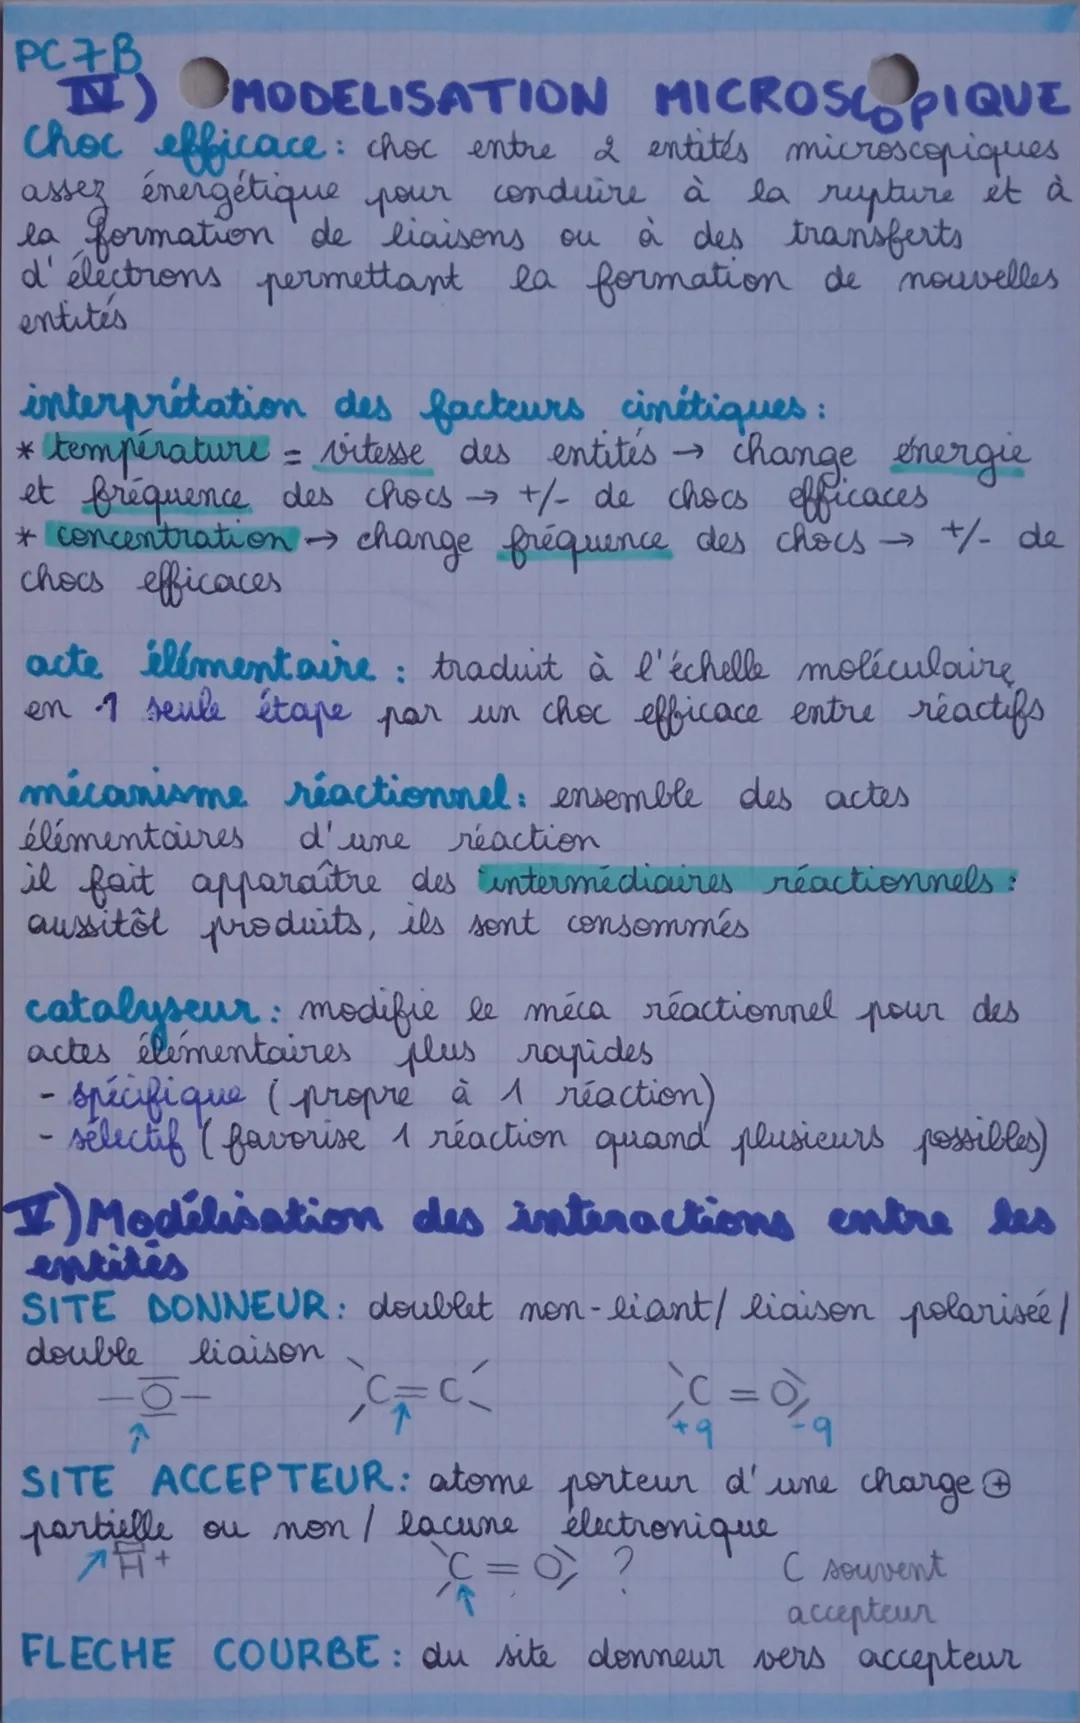 PC7B
IV) MODELISATION MICROSCOPIQUE
choc efficace : choc entre 2 entités microscopiques
assez énergétique pour conduire à la rupture et à
la formation de liaisons ou à des transferts
d'électrons permettant la formation de nouvelles
entités
interprétation des facteurs cinétiques :
* température = vitesse des entités → change énergie
et fréquence des chocs → +/- de chocs efficaces
* concentration → change fréquence des chocs → +/- de
chocs efficaces
acte élémentaire : traduit à l'échelle moléculaire
en 1 seule étape par un choc efficace entre réactifs
mécanisme réactionnel : ensemble des actes
élémentaires d'une réaction
il fait apparaître des intermédiaires réactionnels :
aussitôt produits, ils sont consommés
catalyseur : modifie le méca réactionnel pour des
actes élémentaires plus rapides
- spécifique (propre à 1 réaction)
- sélectif (favorise 1 réaction quand plusieurs possibles)
V) Modélisation des interactions entre les
entités
SITE DONNEUR : doublet non-liant/ liaison polarisée/
double liaison
-O- C=C C=O
+q -q
SITE ACCEPTEUR : atome porteur d'une charge ⊕
partielle ou non / lacune électronique
H+ C=O ? C souvent
accepteur
FLECHE COURBE : du site donneur vers accepteur